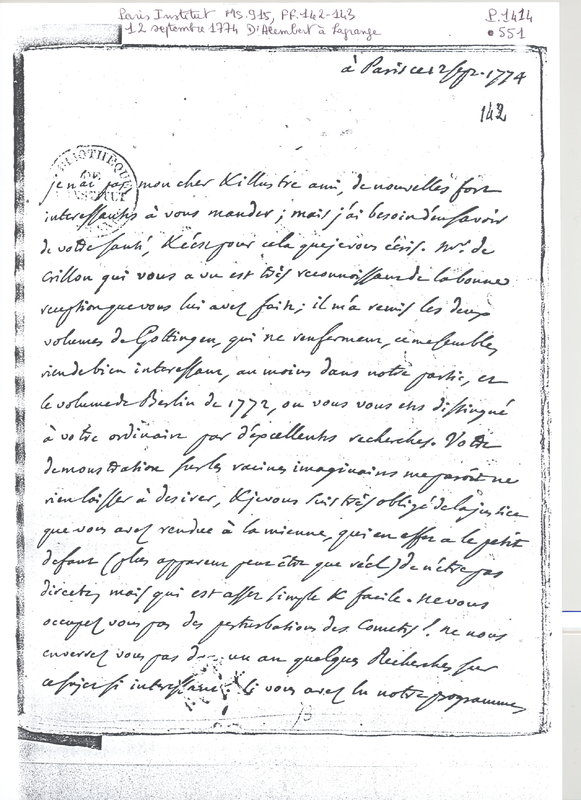 Paris Institut MS. 915, PF. 142-143
12 septembre 1774 D'Alembert à Lagrange
P. 1414
• 551
à Paris ce 12 sept. 1774
142
BIBLIOTHEQUE
DE
L'INSTITUT
je n'ai pas, mon cher & illustre ami, de nouvelles fort
interessantes à vous mander; mais j'ai besoin d'en savoir
de votre santé, & c'est pour cela que je vous écris. Mr. de
Crillon qui vous a vu est très reconnoissant de la bonne
reception que vous lui avez faite; il m'a remis les deux
volumes de Gottingen, qui ne renferment, ce me semble,
rien de bien interessant, au moins dans notre partie, et
le volume de Berlin de 1772, ou vous vous etes distingué
à votre ordinaire par d'excellentes recherches. Votre
demonstration sur les racines imaginaires me paroit ne
rien laisser à desirer, & je vous suis très obligé de la justice
que vous avez rendue à la mienne, qui en effet a le petit
defaut (plus apparent peut être que réel) de n'être pas
directe, mais qui est assez simple & facile. ne vous
occupez vous pas des perturbations des Cometes! ne nous
enverrez vous pas un an quelques Recherches sur
ce sujet si interessant. Si vous avez lu notre programme,